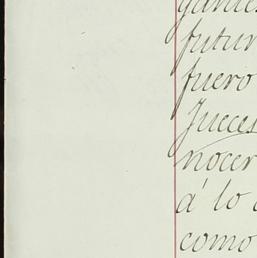 futur
fuero
Jueces
nocer
á lo
como